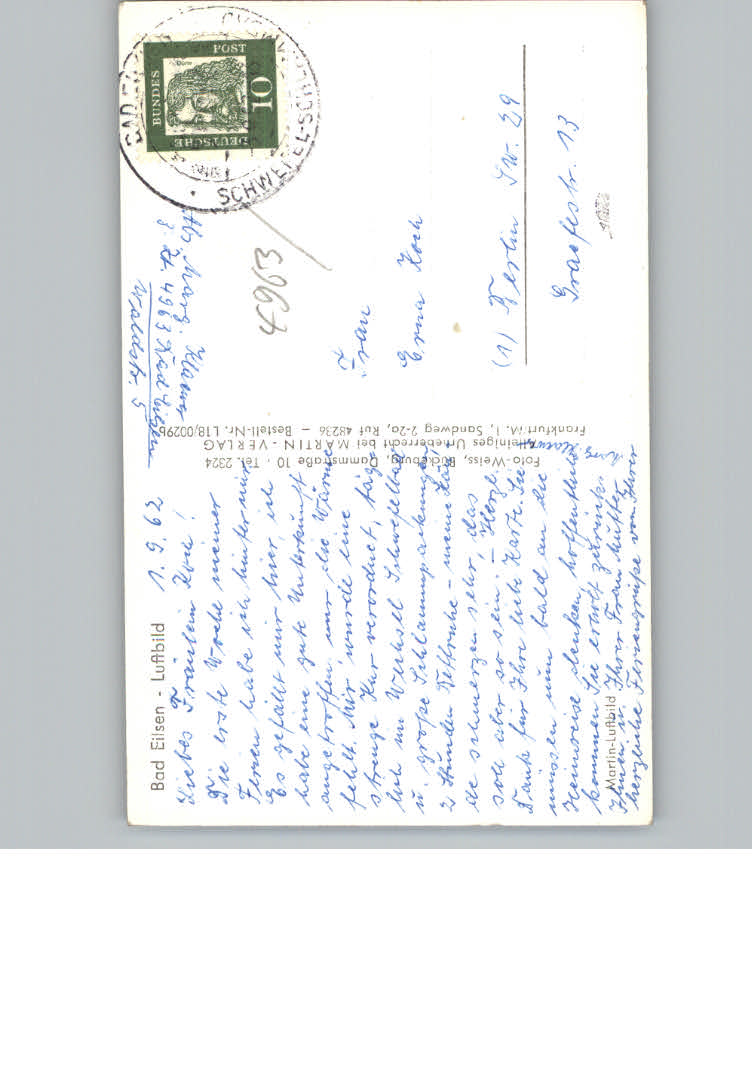 Bad Eilsen - Luftbild
1. 9. 62
Liebes Fräulein Koch!
Die erste Woche meiner
Ferien habe ich hinter mir
Es gefällt mir hier, ich
habe eine gute Unterkunft
angetroffen nur die Wärme
fehlt. Mir wurde eine
strenge Kur verordnet, täg-
lich im Wechsel Schwefelbad
u. große Schlammpackungen
2 Stunden Bettruhe - meine
de schmerzen sehr, das
soll aber so sein. - Herzl.
Dank für Ihre liebe Karte. Sie
müssen nun bald an die
Heimreise denken, hoffentlich
kommen Sie erholt zurück.
Ihnen u. Ihrer Frau Mutter
herzliche Feriengrüße von Ihrer
Martin-Luftbild
Foto-Weiss, Bückeburg, Dammstraße 10 · Tel. 2324
Alleiniges Urheberrecht bei MARTIN - VERLAG
Frankfurt/M. 1, Sandweg 2-2a, Ruf 48236 — Bestell-Nr. L18/00295
Abs. Marg.
z. Zt. 4963 Bad Eilsen
Waldstr. 5
4963
DEUTSCHE
BUNDES
POST
10
BAD EILSEN
SCHWEFEL-SCH
Frau
Erna Koch
(1) Berlin SW. 29
Graefestr. 13